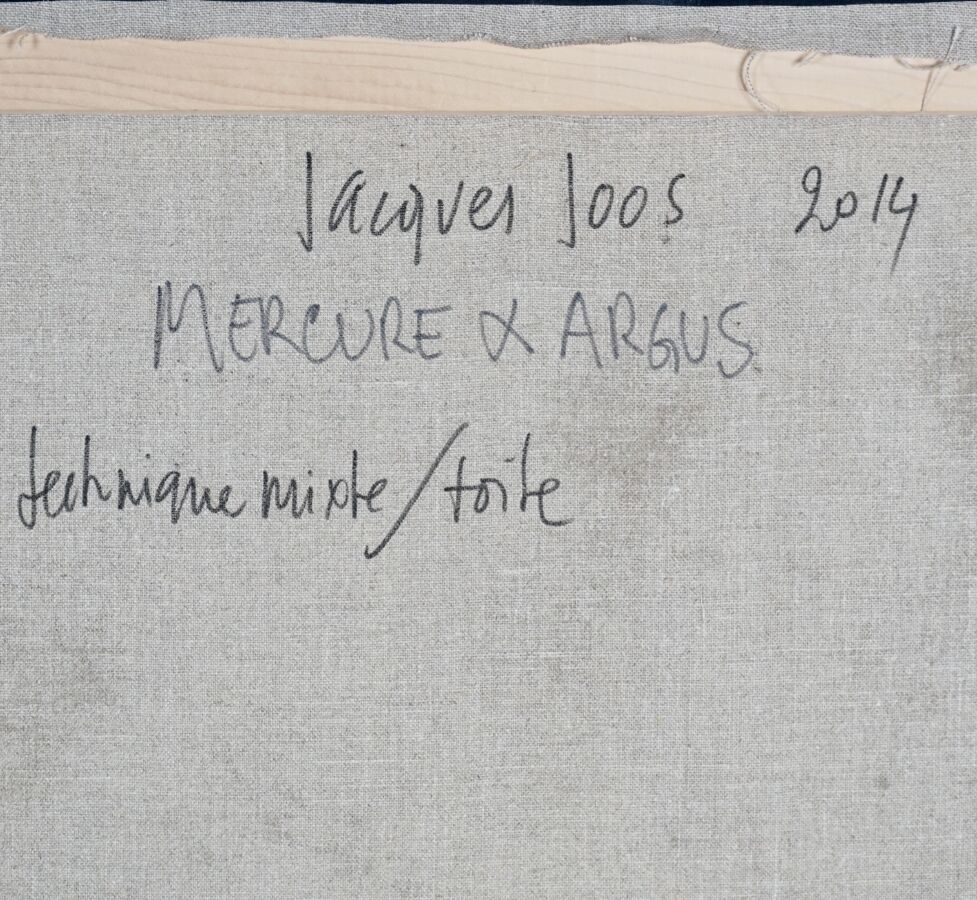 Jacques Joos 2014
MERCURE & ARGUS
technique mixte/toile